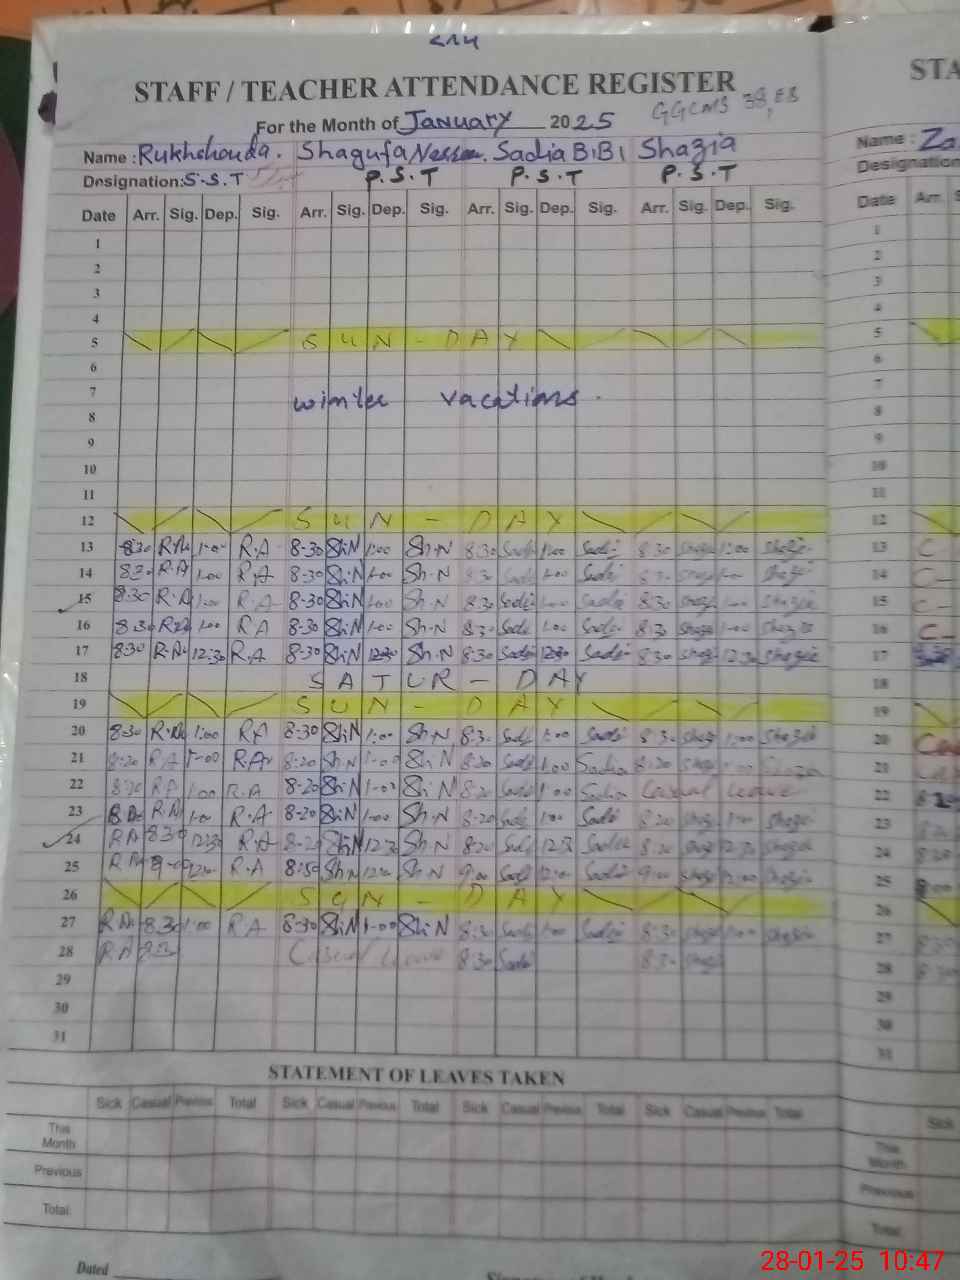 STAFF / TEACHER ATTENDANCE REGISTER STA
GGCMS
For the Month of January 2025
Name : Rukhshonda. Shagufa Sadia BiBi Shazia Name : Za
Designation: S.S.T P.S.T P.S.T P.S.T Designation
Date Arr. Sig. Dep. Sig. Arr. Sig. Dep. Sig. Arr. Sig. Dep. Sig. Arr. Sig. Dep. Sig. Date Arr. S
1 1
2 2
3 3
4 4
5 SUN - DAY 5
6 6
7 winter vacations. 7
8 8
9 9
10 10
11 11
12 SUN - DAY 12
13 8:30 R.A 1:00 R.A 8-30 Sh.N 1:00 Sh.N 8:30 Sadi 1:00 Sadi 8:30 Shazi 1:00 Shazia 13 C
14 8:30 R.A 1:00 R.A 8-30 Sh.N 1:00 Sh.N 8:30 Sadi 1:00 Sadi 8:30 1:00 Shazi 14 C
15 8:30 R.A 1:00 R.A 8-30 Sh.N 1:00 Sh.N 8:30 Sadi 1:00 Sadia 8:30 Shazi 1:00 Shazia 15 C
16 8:30 R.A 1:00 R.A 8-30 Sh.N 1:00 Sh.N 8:30 Sadi 1:00 Sadi 8:30 Shazi 1:00 Shazia 16 C
17 8:30 R.A 12:30 R.A 8-30 Sh.N 12:30 Sh.N 8:30 Sadi 12:30 Sadi 8:30 Shazi 12:30 Shazia 17
18 SATUR - DAY 18
19 SUN - DAY 19
20 8:30 R.A 1:00 RA 8-30 Sh.N 1:00 Sh.N 8:30 Sadi 1:00 Sadi 8:30 Shaz 1:00 Shazia 20
21 8:20 RA 1-00 R.A 8:20 Sh.N 1-00 Sh.N 8:20 Sadi 1:00 Sadia 8:20 Shaz 1:00 Shazia 21
22 8:20 RA 1:00 R.A 8-20 Sh.N 1-00 Sh.N 8:20 Sadi 1:00 Sadia Casual leave 22
23 R.A 1:00 R.A 8-20 Sh.N 1-00 Sh.N 8:20 Sadi 1:00 Sadi 8:20 Shaz 1:00 Shazi 23
24 RA 8:30 12:30 R.A 8-20 Sh.N 12:30 Sh.N 8:20 Sadi 12:30 Sadia 8:20 Shaz 12:30 Shazia 24
25 RA 9-00 12:00 R.A 8:50 Sh.N 12:00 Sh.N 9:00 Sadi 12:00 Sadia 9:00 Shaz 12:00 Shazia 25
26 SUN - DAY 26
27 RA 8.30 1:00 R.A 8-30 Sh.N 1-00 Sh.N 8:30 Sadi 1:00 Sadia 8:30 Shazi 1:00 Shazia 27
28 RA 8:30 Casual leave 8:30 Sadi 8:30 Shazi 28
29 29
30 30
31 31
STATEMENT OF LEAVES TAKEN
Sick Casual Previous Total Sick Casual Previous Total Sick Casual Previous Total Sick Casual Previous Total Sick
This Month This Month
Previous Previous
Total Total
Dated
28-01-25 10:47